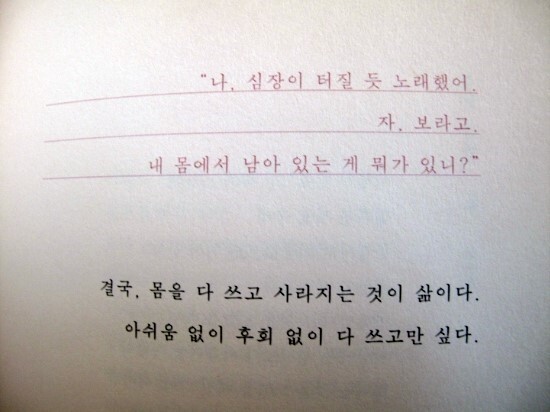 “나, 심장이 터질 듯 노래했어.
자, 보라고.
내 몸에서 남아 있는 게 뭐가 있니?”
결국, 몸을 다 쓰고 사라지는 것이 삶이다.
아쉬움 없이 후회 없이 다 쓰고만 싶다.